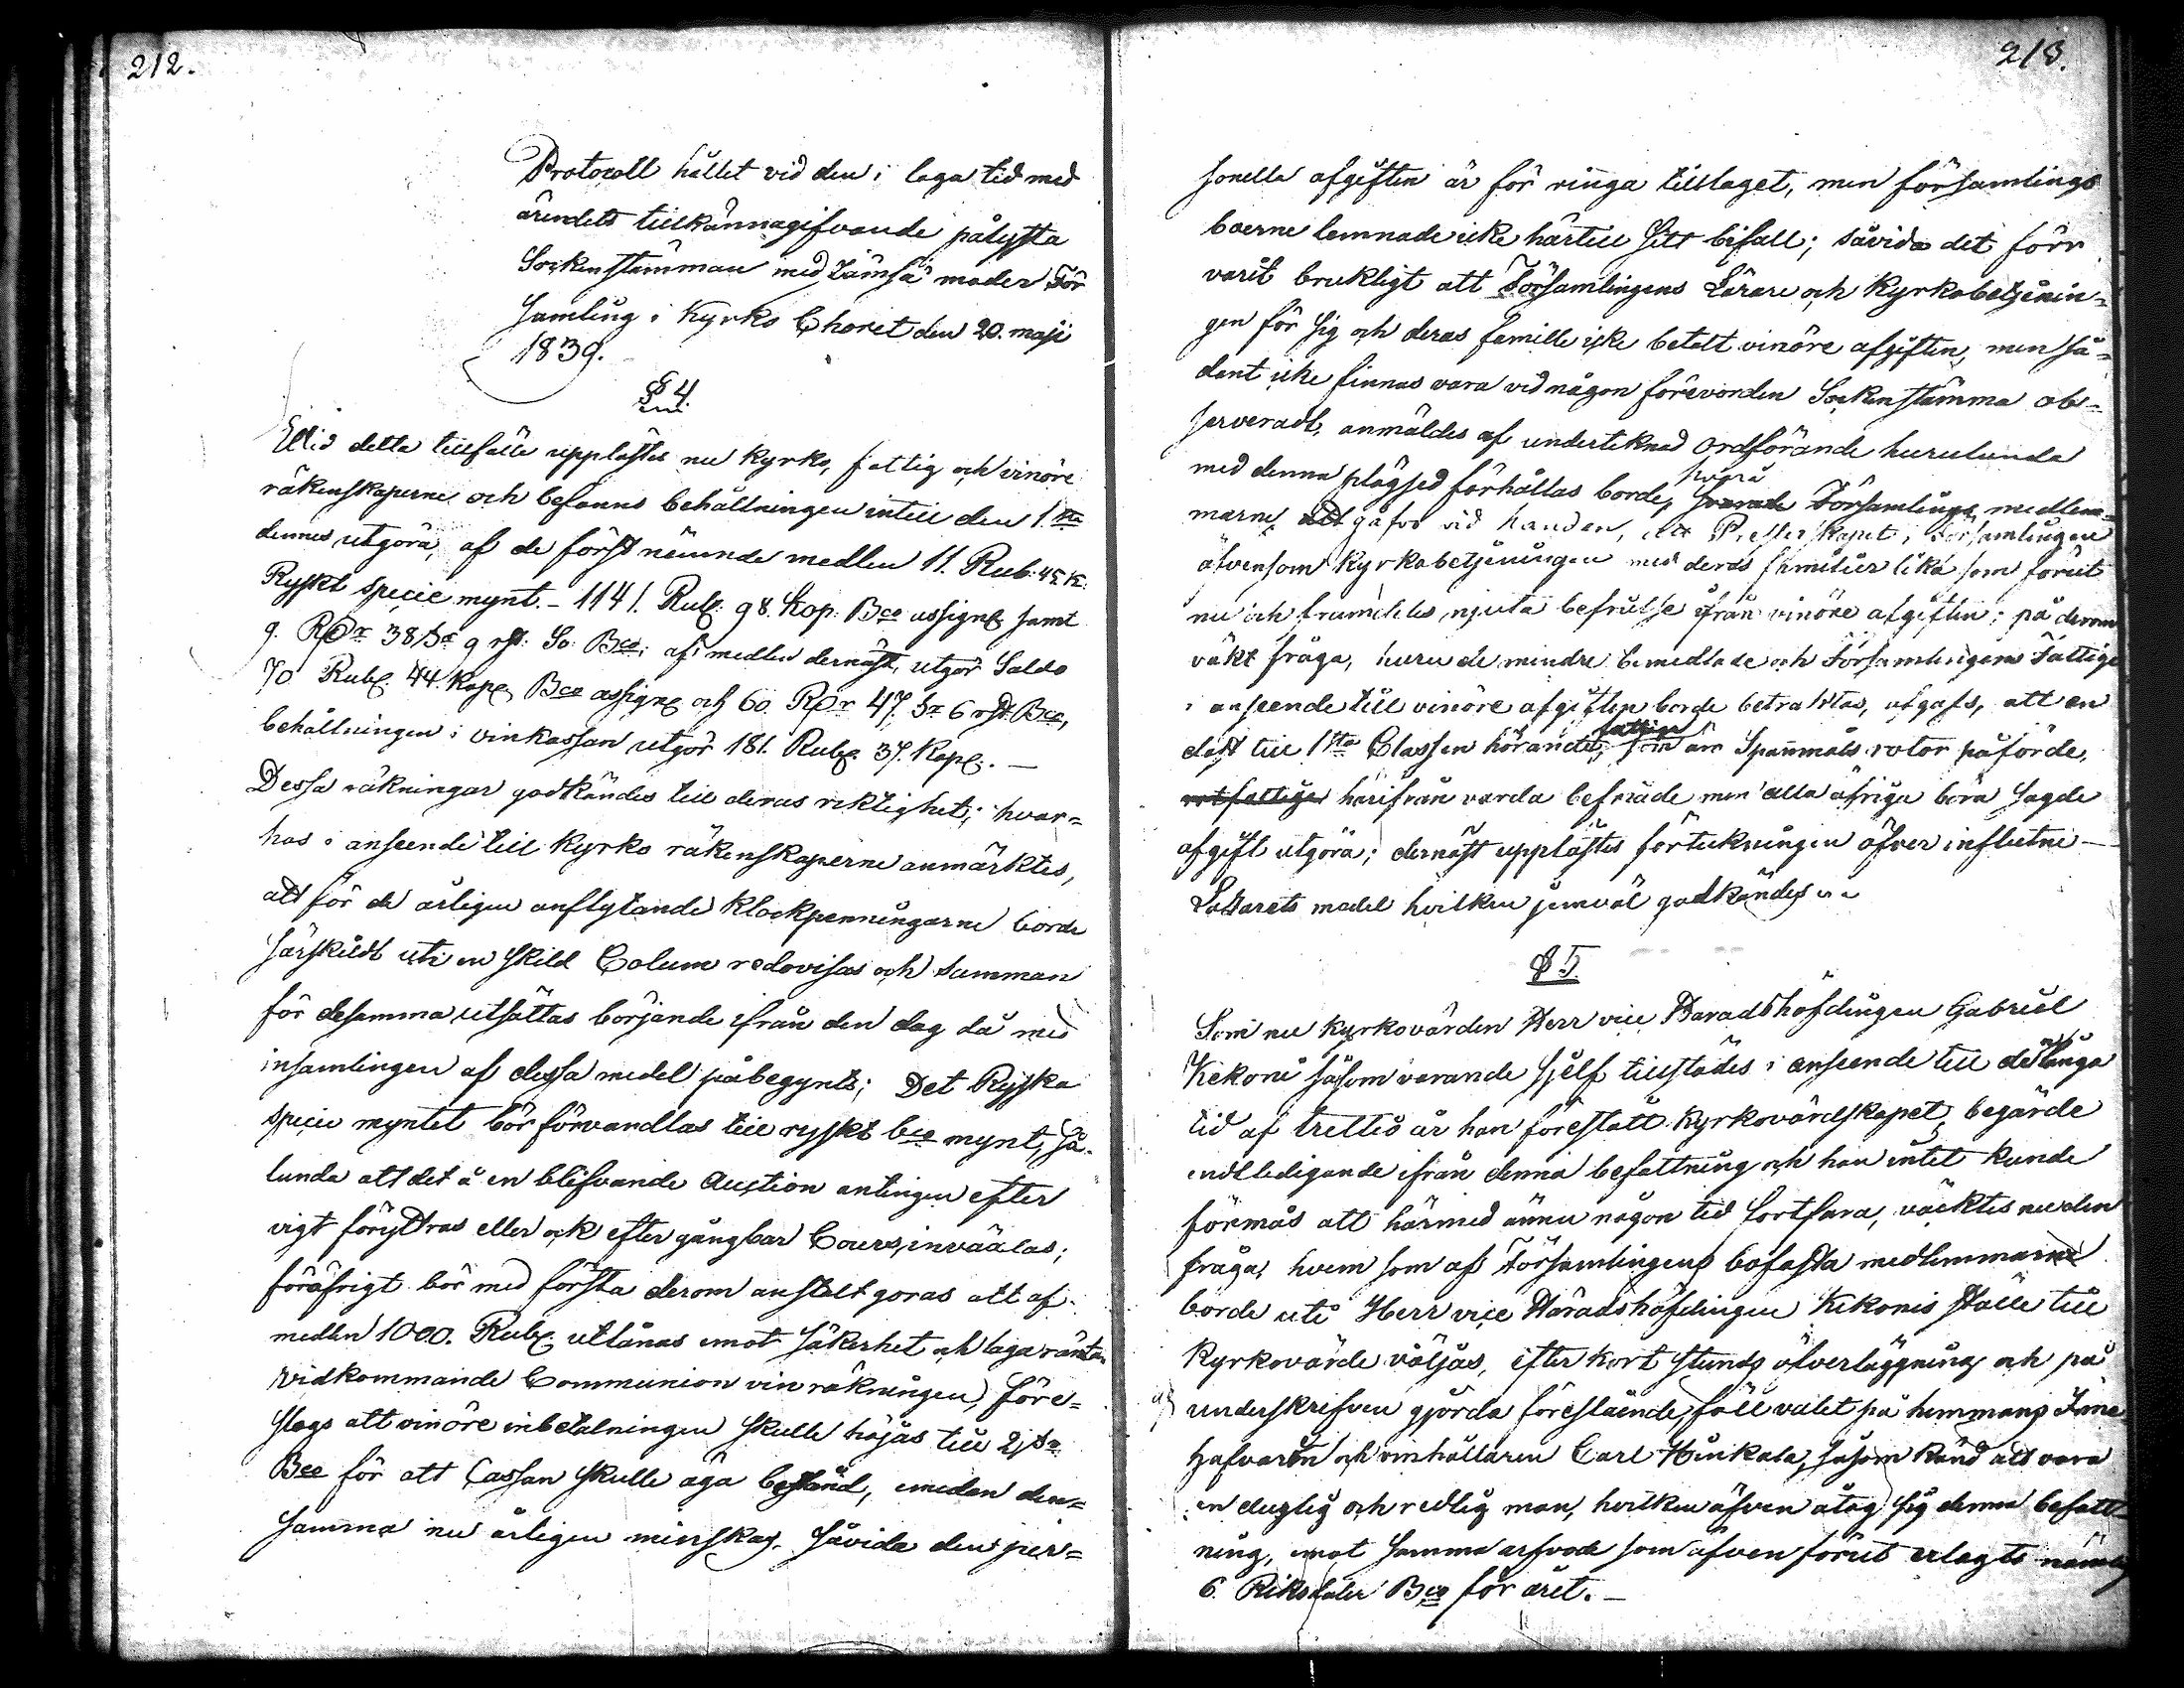 212.
Protocoll hållet vid den i laga tid med
ärendets tillkännagifvande pålysta
Sockenstämman med Jämsä moder För
samling i Kyrko Choret den 20. maji
1839.
§ 4
Vid detta tillfälle upplästes nu Kyrko, fattig och vinöre
räkenskaperne och befanns behållningen intill den 1.sta
dennes utgöra, af de först nämnde medlen 11. Rub: 45 K:
Ryskt specie mynt. - 1141. Rub: 98. Kop: Bco assigne samt
9. RDr 38 sr 9 rst: So: Bco; af medlen dernäst, utgör Saldo
70 Rube 44. Kope Bco assigne och 60. RDr 47. sr 6 rst Bco,
behållningen i vinkassan utgör 181. Rube. 37. Kope. —
Dessa räkningar godkändes till deras riktighet; hvar=
hos i anseende till Kyrko räkenskaperne anmärktes,
att för de årligen anflytande Klockpenningarne borde
särskildt uti en skild Colum redovisas och summan
för desamma utsättas börjande ifrån den dag då med
insamlingen af dessa medel påbegynts; Det Ryska
specie myntet bör förvandlas till ryskt bco mynt, så-
lunda att det å en blifvande Auction antingen efter
vigt föryttras eller ock efter gångbar Cours, inväxlas;
föröfrigt bör med första derom anstalt göras att af
medlen 1000. Rube utlånas emot säkerhet och laga ränta
vidkommande Communion vin räkningen, före=
slogs att vinöre inbetalningen skulle höjas till 2 sr
Bco för att Cassan skulle äga bestånd, emedan den=
samma nu årligen minskas, såvida den per=
213.
sonella afgiften är för ringa tilltaget, men församlings
boerne lemnade icke härtill sitt bifall; såvida det förr
varit brukligt att Församlingens Lärare och Kyrkobetjenin=
gen för sig och deras famille icke betalt vinöre afgiften, men så=
dant icke finnas vara vid någon förevorden Sockenstämma ob=
serveradt, anmäldes af undertecknad Ordförande hurulunda
med denna plägsed förhållas borde, hvarå Församlings medlem=
marne gåfvo vid handen, att Presterskapet i Församlingen
äfvensom Kyrkobetjeningen med deras familier lika som förut
nu och framdeles njuta befrielse ifrån vinöre afgiften; på derom
väkt fråga, huru de mindre bemedlade och Församlingens Fattige
i anseende till vinöre afgiften borde betraktas, afgafs, att en
dast till 1sta Classen hörande fattige som äro Spannmåls rotor påförde,
rotfattige härifrån varda befriade men alla öfriga böra sagde
afgift utgöra; dernäst upplästes förteckningen öfver influtne —
Lazarets medel hvilken jemväl godkändes
§ 5
Som nu Kyrkovärden Herr vice Häradshöfdingen Gabriel
Kekoni såsom varande sjelf tillstädes i anseende till den långa
tid af trettio år han förestått Kyrkovärdskapet, begärde
entledigande ifrån denna befattning och han intet kunde
förmås att härmed ännu någon tid fortfara, väcktes nu den
fråga, hvem som af Församlingens bofasta medlemmarne
borde uti Herr vice Häradshöfdingen Kekonis ställe till
Kyrkovärde väljas, efter kort stunds öfverläggning och på
af underskrifven gjorda föreslående föll valet på hemmans Inne
hafvaren och vinhållaren Carl Hinkala, såsom känd att vara
en duglig och redlig man, hvilken äfven åtog sig denna befatt=
ning, emot samma arfvode som äfven förut erlagts
6. Riksdaler Bco för året. —